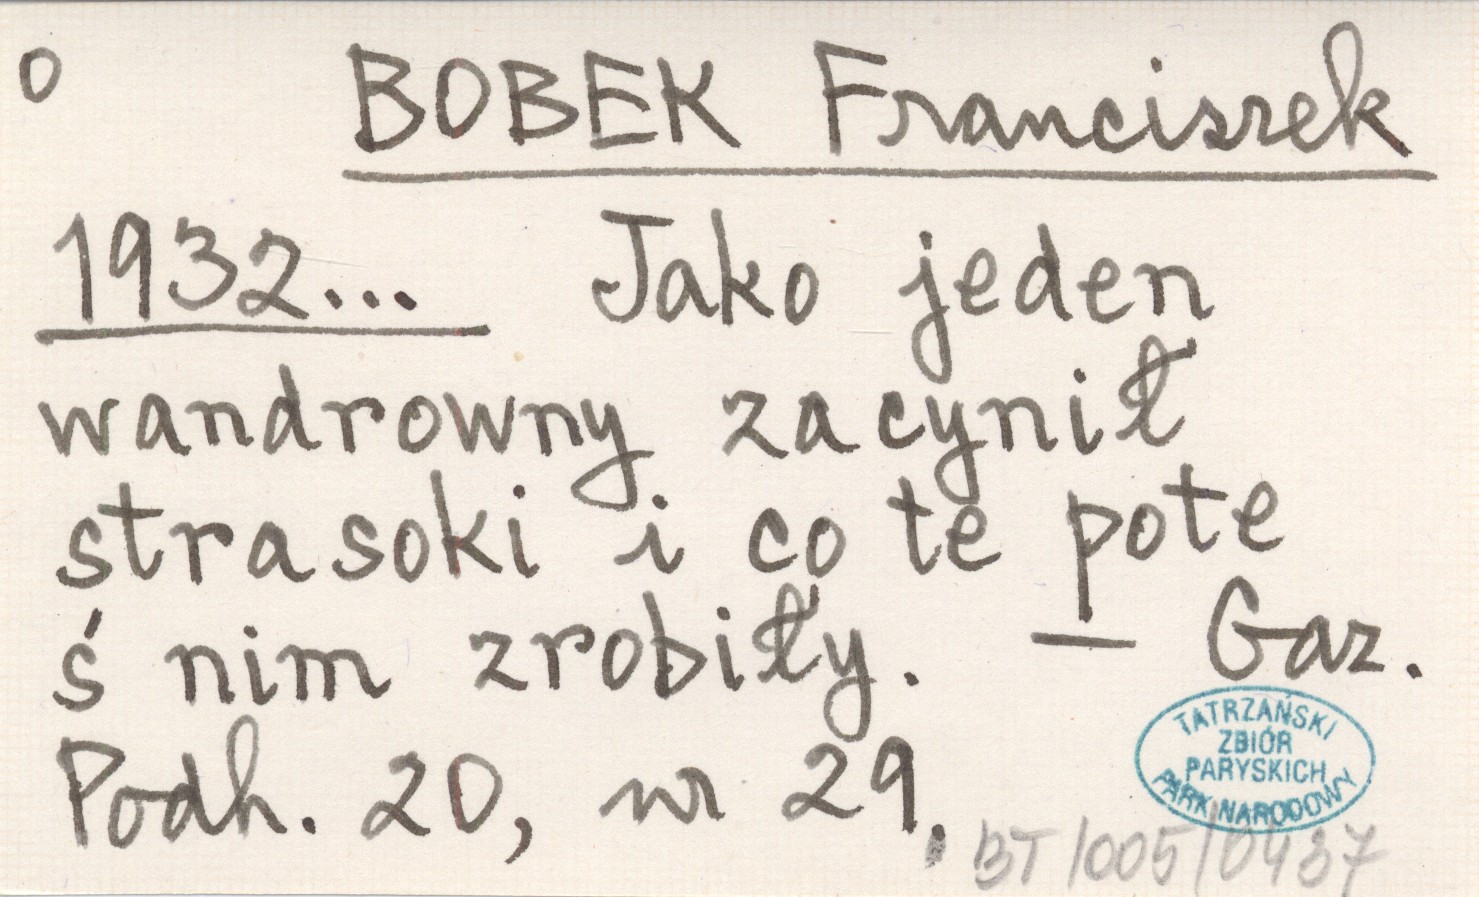 o BOBEK Franciszek
1932... Jako jeden
wandrowny zacynił
strasoki i co te pote
ś nim zrobiły. — Gaz.
Podh. 20, nr 29.
TATRZAŃSKI
ZBIÓR
PARYSKICH
PARK NARODOWY
BT/005/0437